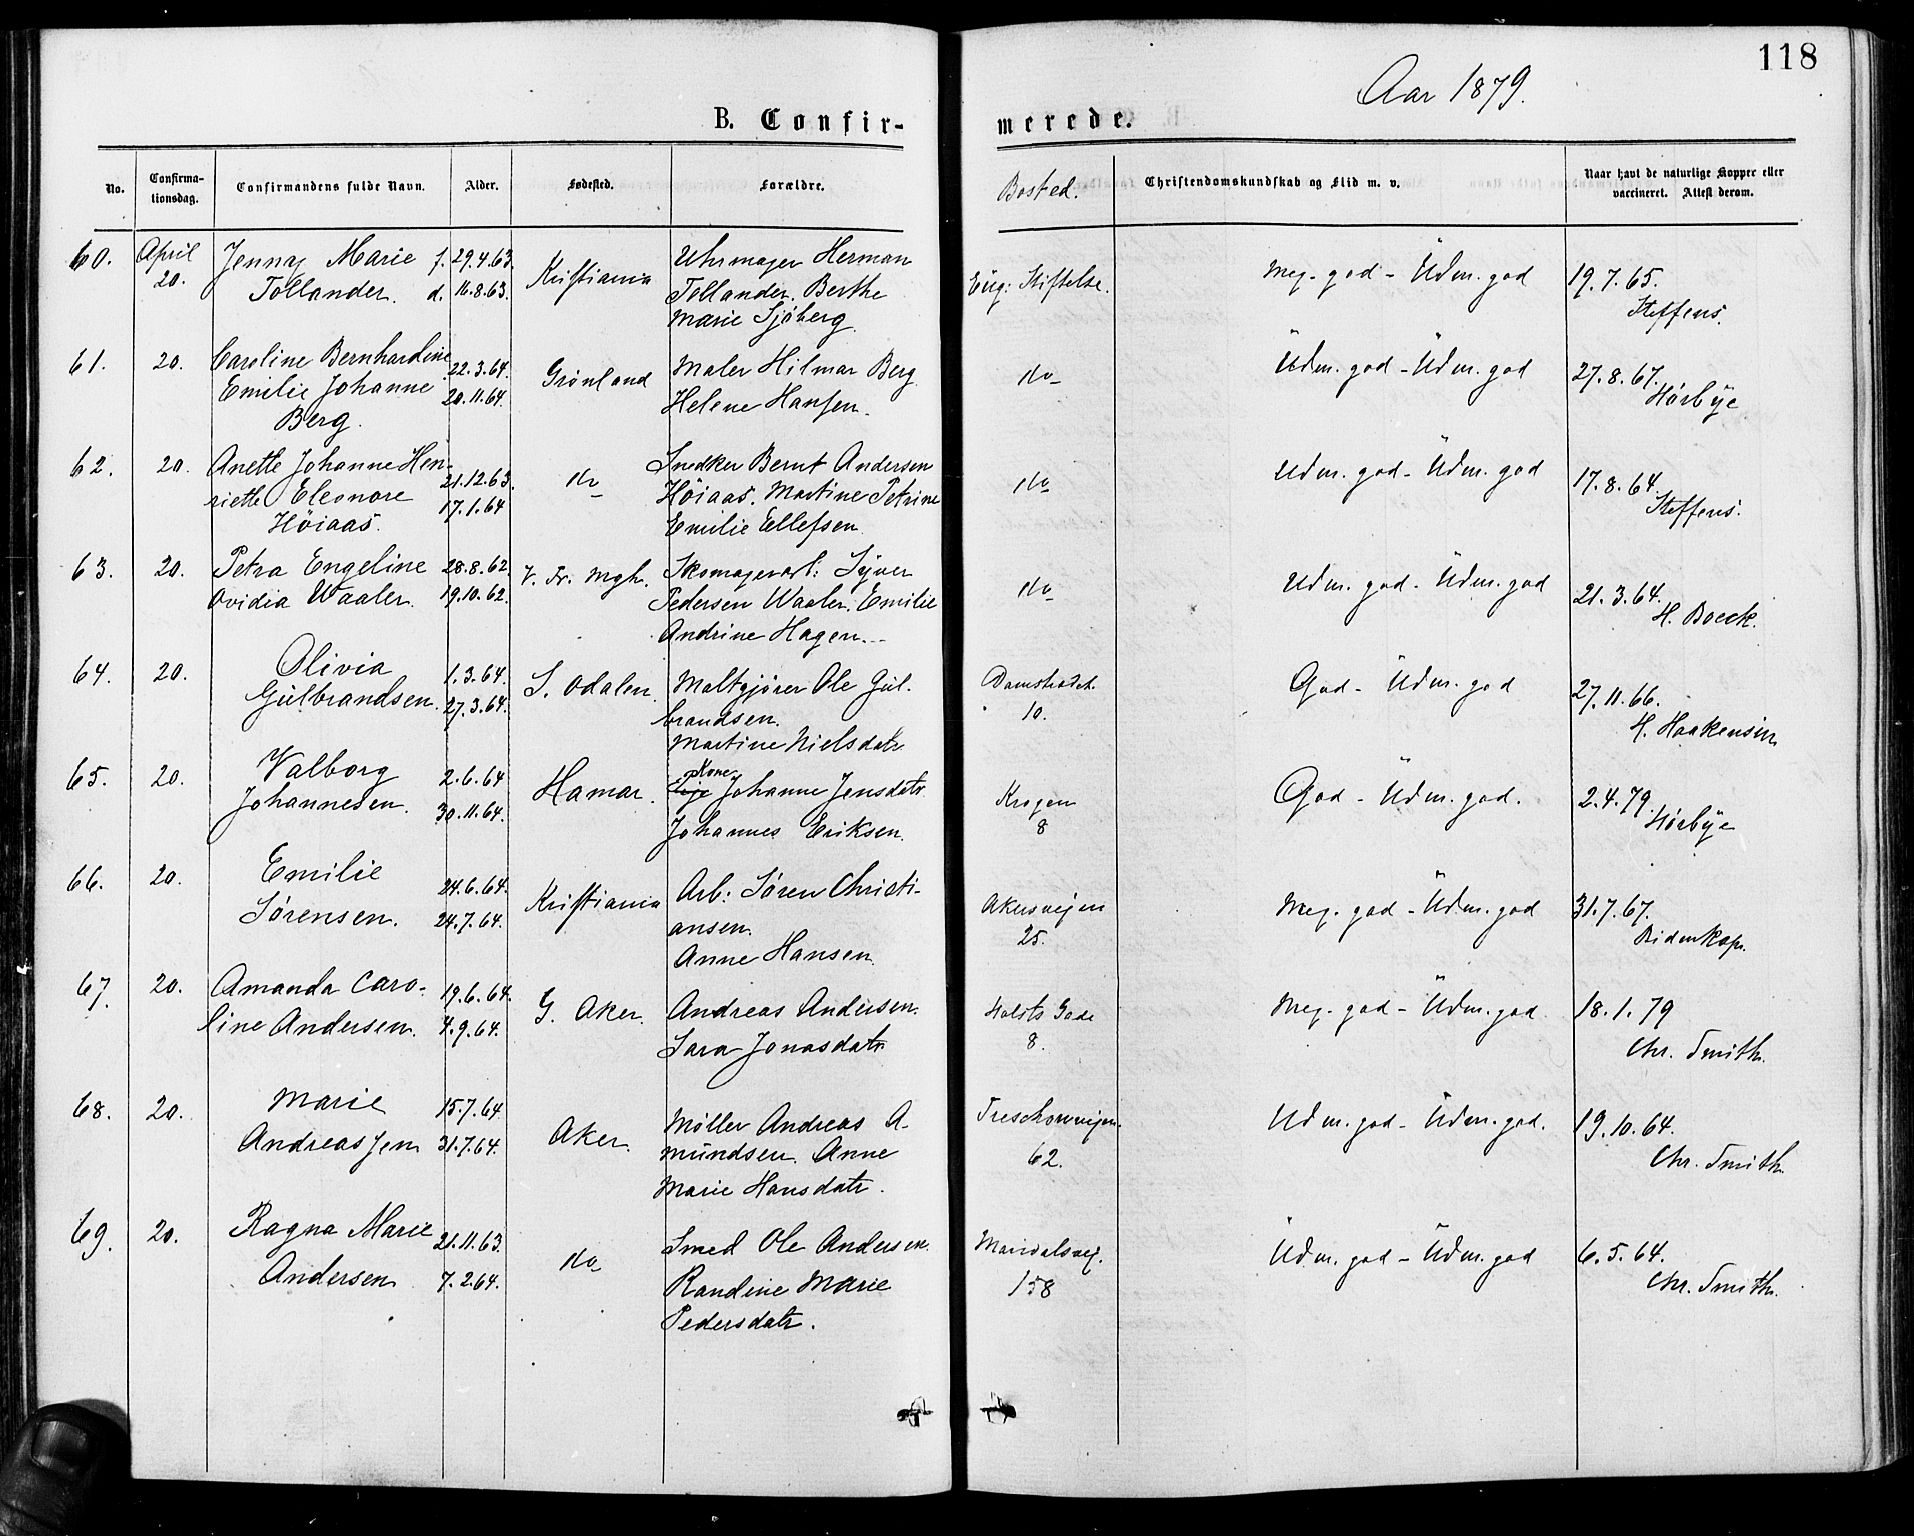 118
Aar 1879.
B. Confir-
merede.
No.
Confirma-
tionsdag.
Confirmandens fulde Navn.
Alder.
Fødested.
Forældre.
Bosted.
Christendomskundskab og Flid m. v.
Naar havt de naturlige Kopper eller
vaccineret. Attest derom.
60.
April
20.
Jenny Marie
Tollander.
f. 29.4.63.
d. 16.8.63.
Kristiania
Uhrmager Herman
Tollander. Berthe
Marie Sjöberg.
Eug: Stiftelse.
Meg. god - Üdm. god
19.7.65.
Steffens.
61.
20.
Caroline Bernhardine
Emilie Johanne
Berg.
22.3.64.
20.11.64.
Grönland
Maler Hilmar Berg.
Helene Hansen.
do
Üdm. god - Üdm. god
27.8.67.
Hörbÿe
62.
20.
Anette Johanne Hen-
riette Eleonore
Höiaas.
21.12.63.
17.1.64
do
Snedker Bernt Andersen
Höiaas. Martine Petrine
Emilie Ellefsen.
do
Udm. god - Üdm. god
17.8.64.
Steffens.
63.
20.
Petra Engeline
Ovidia Waaler.
28.8.62.
19.10.62.
V. Fr. Mgh.
Skomagerarb: Syver
Pedersen Waaler. Emilie
Andrine Hagen.
do
Udm. god - Üdm. god
21.3.64.
H. Boeck.
64.
20.
Olivia
Gülbrandsen.
1.3.64.
27.3.64.
S. Odalen.
Maltgjörer Ole Gül-
brandsen.
Martine Nielsdatr
Damstrædet.
10.
God - Üdm. god
27.11.66.
H. Haakensen
65.
20.
Valborg
Johannesen.
2.6.64
30.11.64.
Hamar.
Kone
Johanne Jensdatr
Johannes Eriksen.
Krogen
8
God - Üdm. god.
2.4.79.
Hörbÿe
66.
20.
Emilie
Sørensen.
24.6.64.
24.7.64.
Kristiania
Arb: Søren Christi-
ansen.
Anne Hansen.
Akersvejen
25.
Meg. god - Üdm. god
31.7.67.
Bidenkap.
67.
20.
Amanda Caro-
line Andersen.
19.6.64.
4.9.64.
G. Aker.
Andreas Andersen.
Sara Jonasdatr
Holsts Gade
8.
Meg. god - Üdm. god
18.1.79
Chr. Smith.
68.
20.
Marie
Andreasjen
15.7.64
31.7.64.
Aker.
Møller Andreas A-
mündsen. Anne
Marie Hansdatr.
Treschowvejen.
62.
Udm. god - Üdm. god.
19.10.64.
Chr. Smith
69.
20.
Ragna Marie
Andersen
21.11.63.
7.2.64.
do
Smed Ole Andersen.
Randine Marie
Pedersdatr.
Maridalsvej.
158
Üdm. god - Üdm. god
6.5.64.
Chr. Smith.